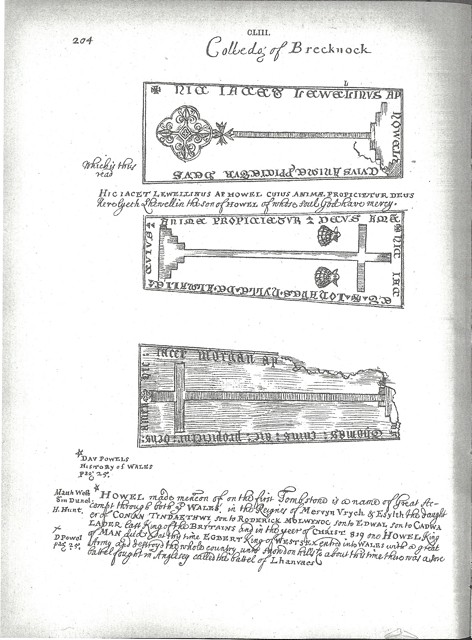 204
CLIII.
Colledg of Brecknock
HIC IACET LEWELINVS AP
HOWEL
CVIVS ANIME PPICIETVR DEVS
Which is thus
read
HIC IACET LEWELLINUS AP HOWEL CUIUS ANIMÆ PROPICIETUR DEUS
Here lyeth Lhewellin the son of HOWEL of whose soul God have mercy.
ANIME PROPICIETVR DEVS AME
HIC IAC
CVIVS
hic : iacet morgan ap
Thomas : cuius : aie : propicietur : deus :
amen
DAV POWELS
HISTORY of WALES
pag 25.
HOWEL made mencon of on the first Tombstone is a name of Great Ac-
compt through both of WALES, in the Reigns of Mervyn Vrych & Esylth the Daught
er of CONAN TYNDAETHWY son to RODERICK MOLWYNOC son to EDWAL son to CADWA
LADER Last King of the BRITTAINS and in the year of CHRIST 819 one HOWEL King
of MAN died, About this time EGBERT King of WEST SEX entred into WALES with a great
Army and destroyed the whole country unto Snowdon hills & about this time there was a sore
battel fought in Anglesey called the battel of Lhanvaes
Math West
Sim Dunel:
H. Hunt.
D Powel
pag 25.